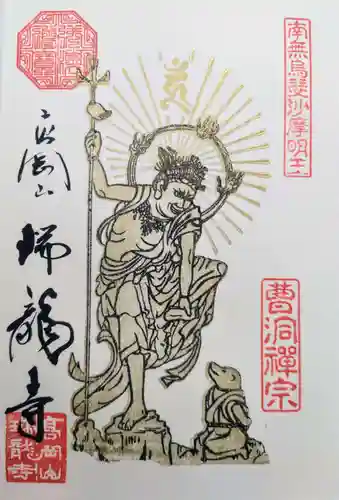 南無烏芻沙摩明王
曹洞禪宗
高岡山
瑞龍寺
高岡山
瑞龍寺